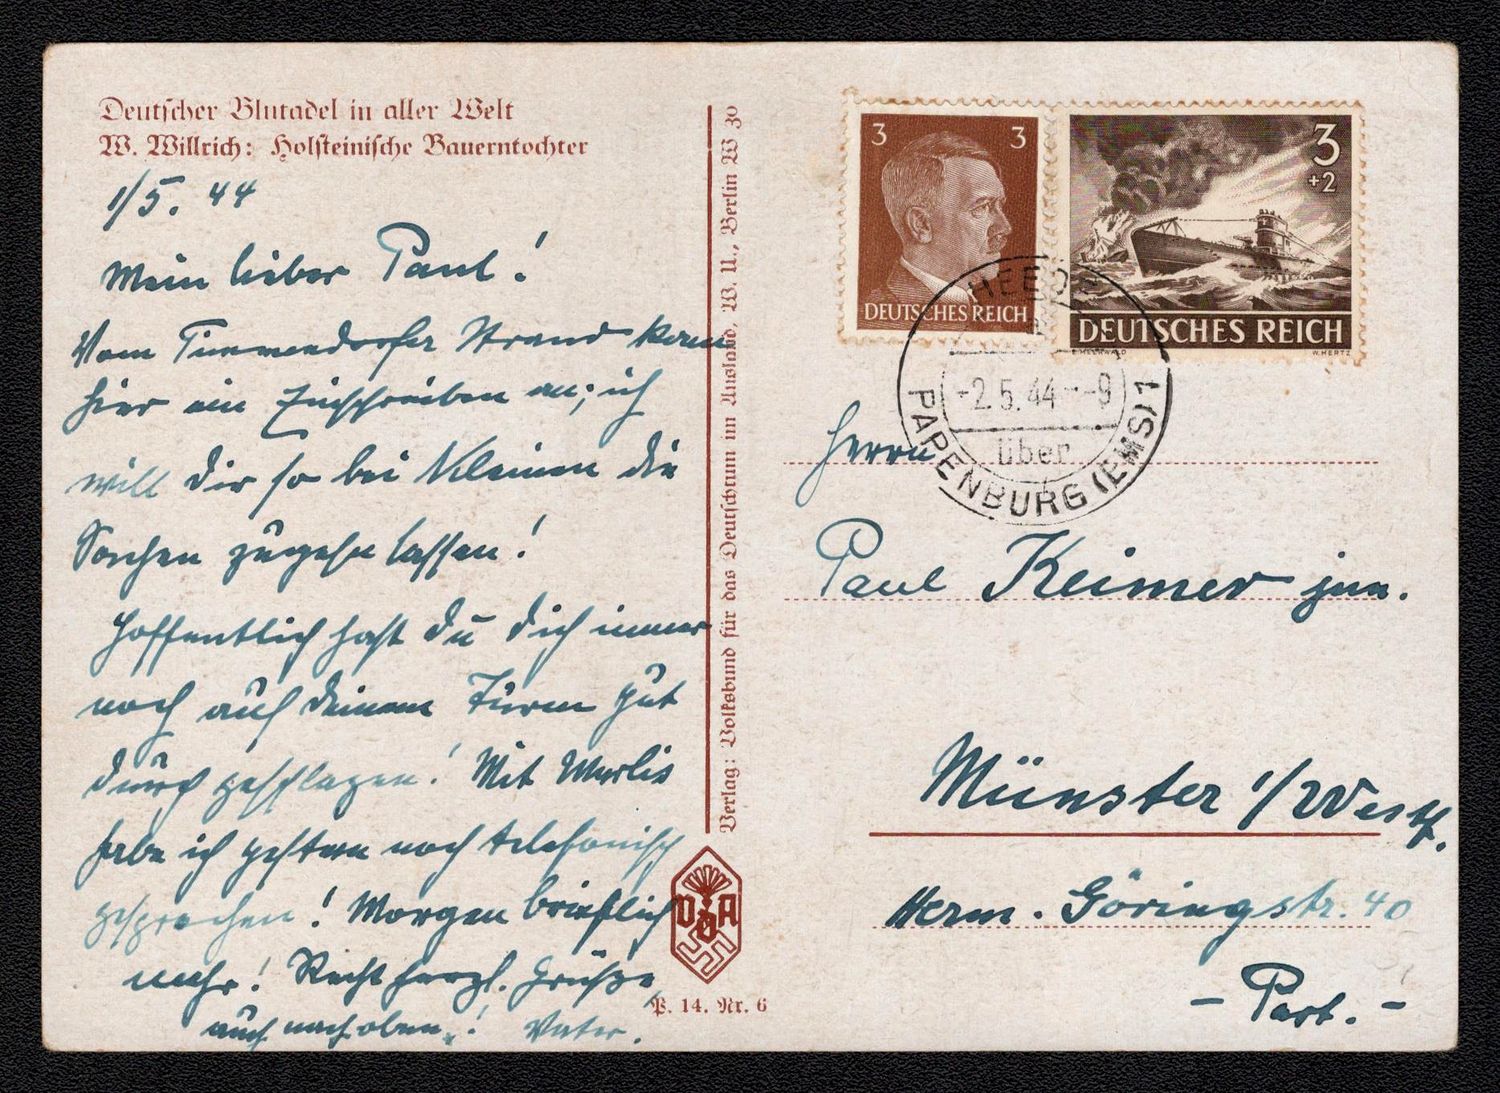 Deutscher Blutadel in aller Welt
W. Willrich: Holsteinische Bauerntochter
1/5. 44
Mein lieber Paul!
Vom Timmendorfer Strand kam
hier ein Einschreiben an; ich
will Dir so bei Kleinem die
Sachen zugehn lassen!
Hoffentlich hast Du Dich immer
noch auf Deinem Turm gut
durchgeschlagen! Mit
habe ich gestern noch telefonisch
gesprochen! Morgen brieflich
mehr! Recht herzl. Grüße,
auch nach oben! Vater.
Verlag: Volksbund für das Deutschtum im Ausland, W. U., Berlin W 30
VDA
P. 14. Nr. 6
3 3
DEUTSCHES REICH
3
+2
DEUTSCHES REICH
W. HERTZ
HEEDE
-2.5.44 - -9
über
PAPENBURG (EMS) 1
Herrn
Paul Keimer jun.
Münster i/Westf.
Herm. Göringstr. 40
- Part. -